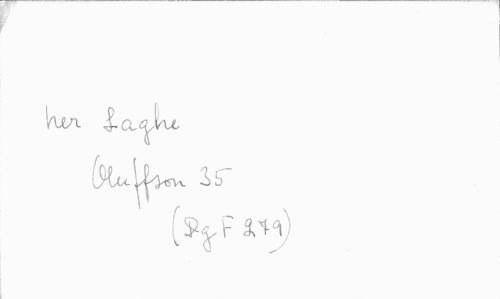 her Laghe
Oluffson 35
(DgF 279)